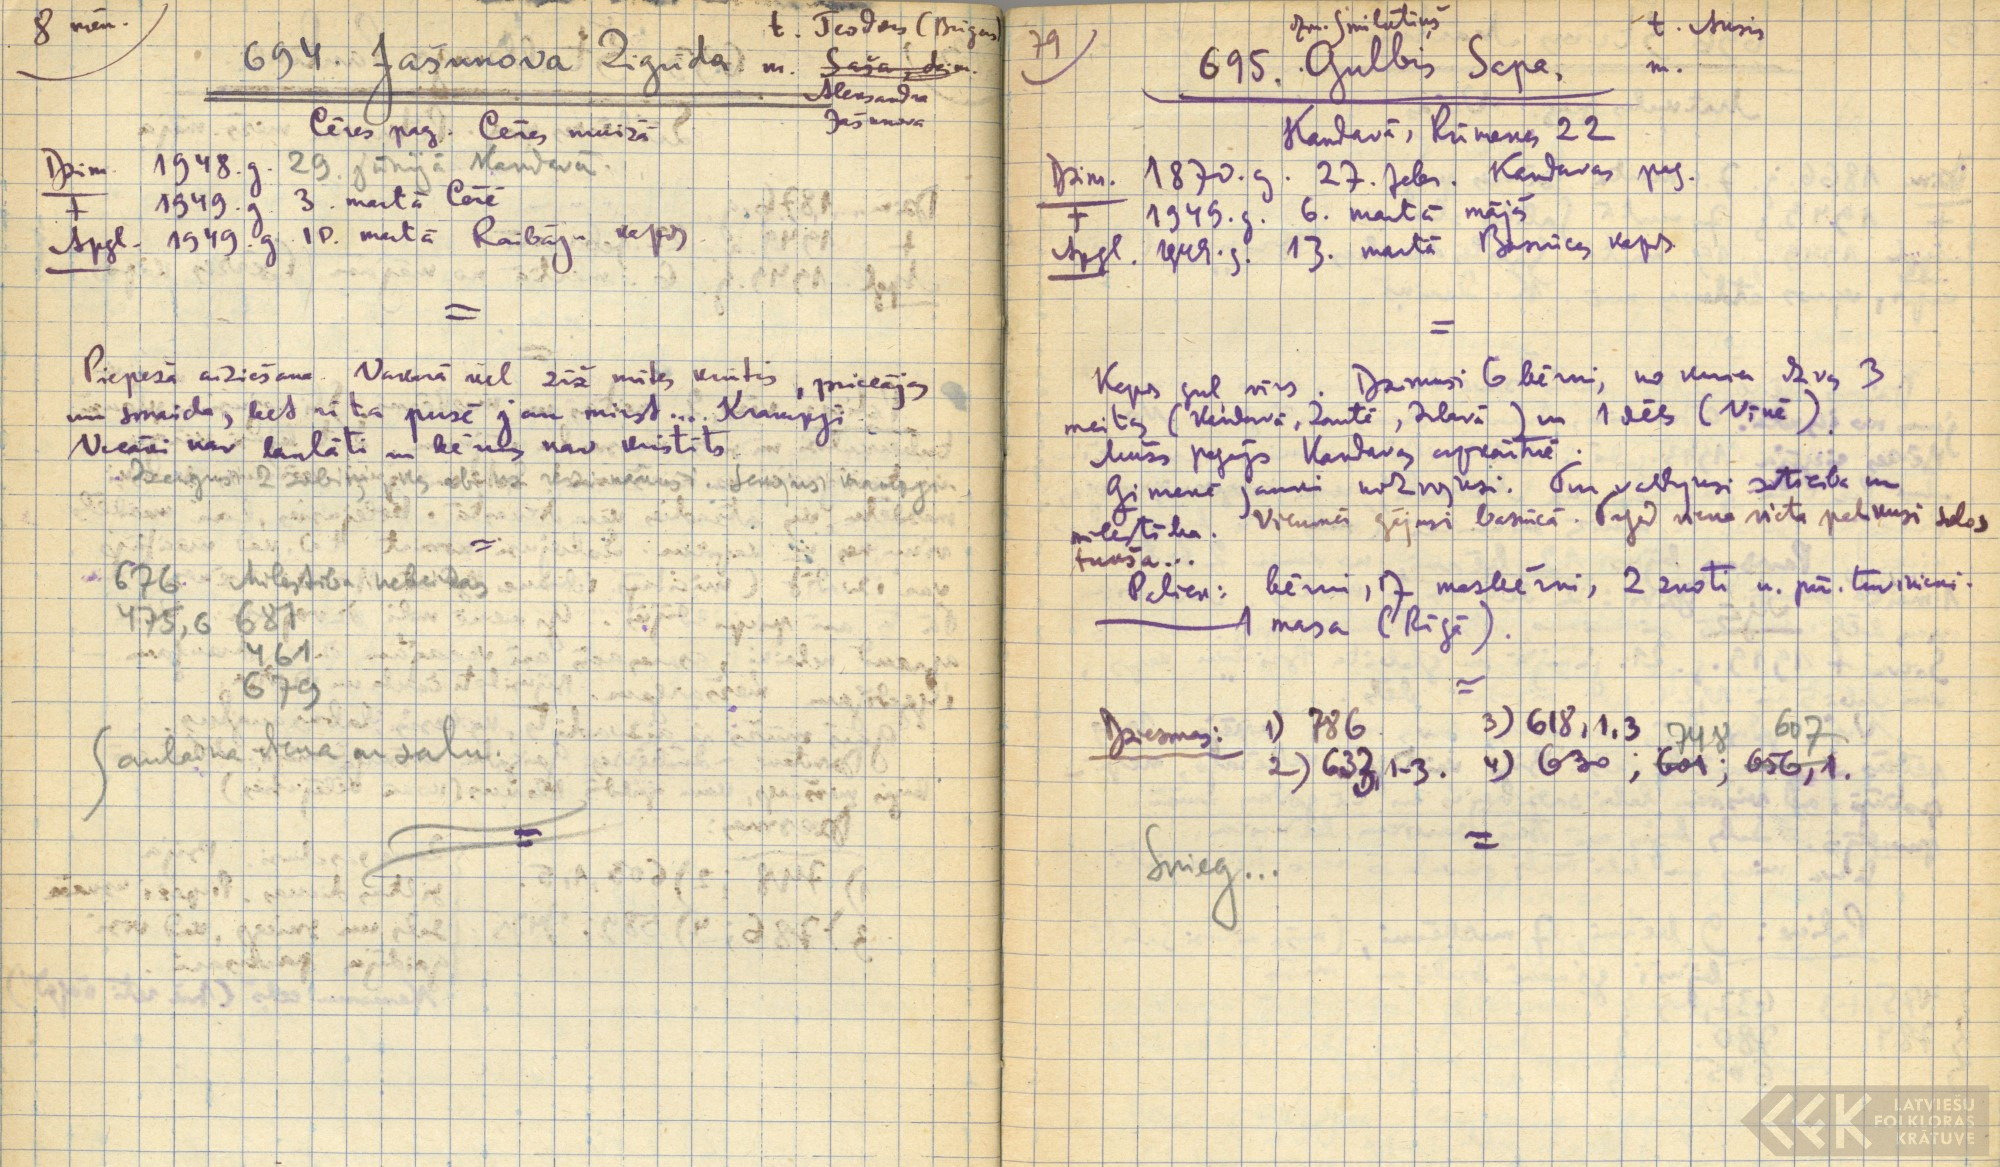 8 mēn.
t. Teodors (Brīgas)
694. Jašunova Zigrīda m. Saša, dzim.
Aleksandra
Jašunova
Cēres pag. Cēres muižā
Dzim. 1948.g. 29. jūnijā Kandavā.
+ 1949.g. 3. martā Cērē
Apgl. 1949.g. 10. martā kapos
=
Piepeša aiziešana. Vakarā vēl zīž mātes krūtis, priecājas
un smaida, bet rīta pusē jau mirst... Krampji.
Vecāki nav laulāti un bērns nav kristīts.
=
676. Mīlestība nebeidzas
475,6 681
461
679
Saulaina diena ar salu.
=
79
dzm. t. Ansis
695. Gulbis Sapa, m.
Kandavā, Rūmenes 22
Dzim. 1870.g. 27. febr. Kandavas pag.
+ 1949.g. 6. martā mājā
Apgl. 1949.g. 13. martā Baznīcas kapos
=
Kapos gul vīrs. Dzimuši 6 bērni, no kuriem dzīvas 3
meitas (Kandavā, Zantē, Irlavā) un 1 dēls (Vīnē).
Mūžs pagājis Kandavas apkaimē.
Ģimenē jauki nodzīvojusi. Tur valdījusi saticība un
mīlestība. Vienmēr gājusi baznīcā. Tagad viena vieta palikusi solos
tukša...
Paliek: bērni, 7 mazbērni, 2 znoti u. pār. tuvinieki.
1 māsa (Rīgā).
=
Dziesmas: 1) 786 3) 618,1.3 748 607
2) 633,1-3. 4) 630; 601; 656,1.
=
Snieg...
LATVIEŠU
FOLKLORAS
KRĀTUVE